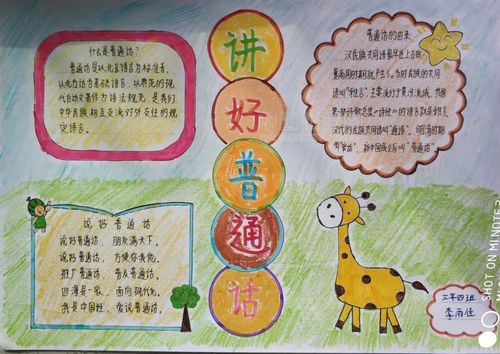 讲好普通话
什么是普通话?
普通话是以北京语音为标准音,
以北方话为基础语言,以典范的现
代白话文著作为语法规范,是我们
中华民族相互交流对外交往的规
定语言。
普通话的由来
汉民族共同语最早在上古的
夏商周时期就产生了。
同语叫"雅言"。主要流行于黄河流域,我国
第一部诗歌总集《诗经》的语言就是雅言。
汉代的民族共同语叫"通语",明清时期
叫"官话",新中国成立后叫"普通话"。
说好普通话
说好普通话,朋友满天下。
说好普通话,方便你我他。
推广普通话,普及普通话。
四海是一家,面向现代化。
我是中国娃,爱说普通话。
三年四班
李雨佳
SHOT ON MI NOTE